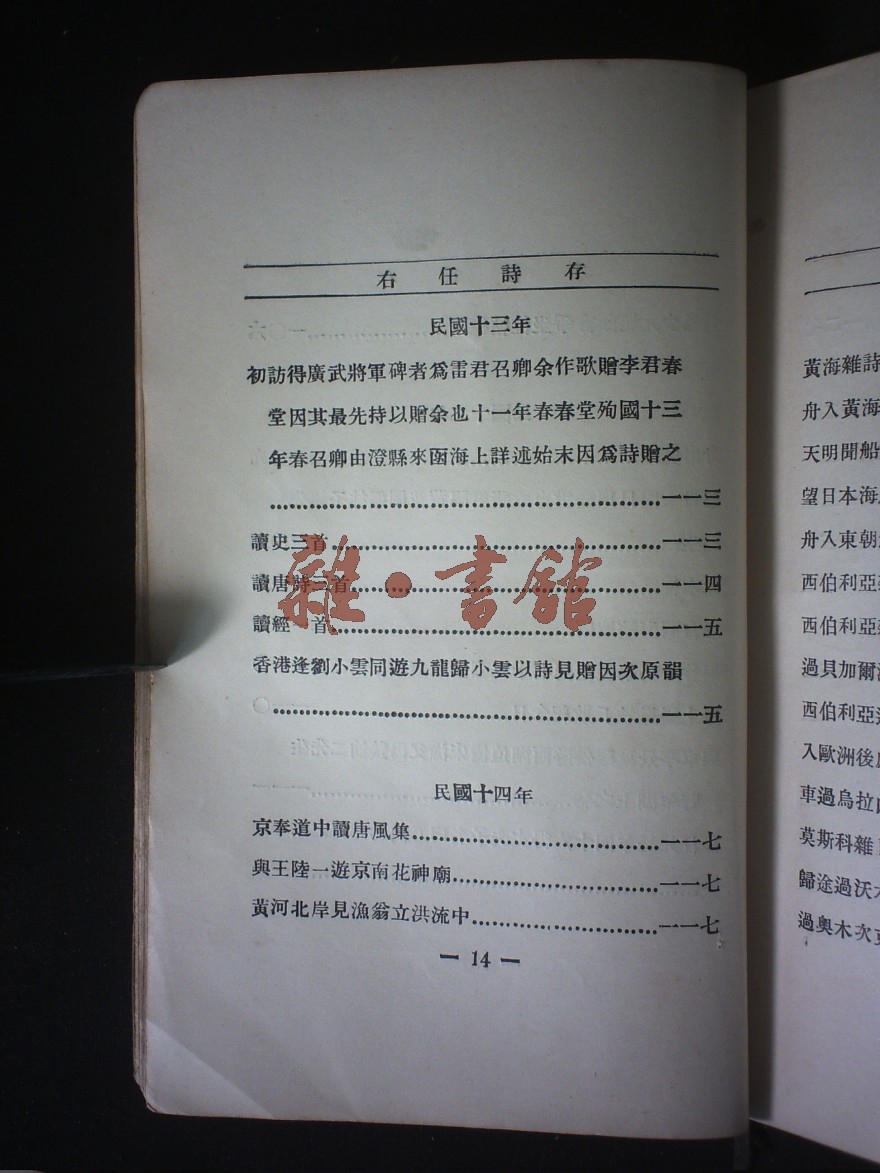 右任詩存
民國十三年
初訪得廣武將軍碑者爲雷君召卿余作歌贈李君春
堂因其最先持以贈余也十一年春春堂殉國十三
年春召卿由澄縣來函海上詳述始末因爲詩贈之
……一一三
讀史三首……一一三
讀唐詩二首……一一四
讀經一首……一一五
香港逢劉小雲同遊九龍歸小雲以詩見贈因次原韻
……一一五
民國十四年
京奉道中讀唐風集……一一七
與王陸一遊京南花神廟……一一七
黃河北岸見漁翁立洪流中……一一七
— 14 —
雜·書館
黃海雜詩
舟入黃海
天明聞船
望日本海
舟入東朝
西伯利亞
西伯利亞
過貝加爾
西伯利亞
入歐洲後
車過烏拉
莫斯科雜
歸途過沃
過奧木次